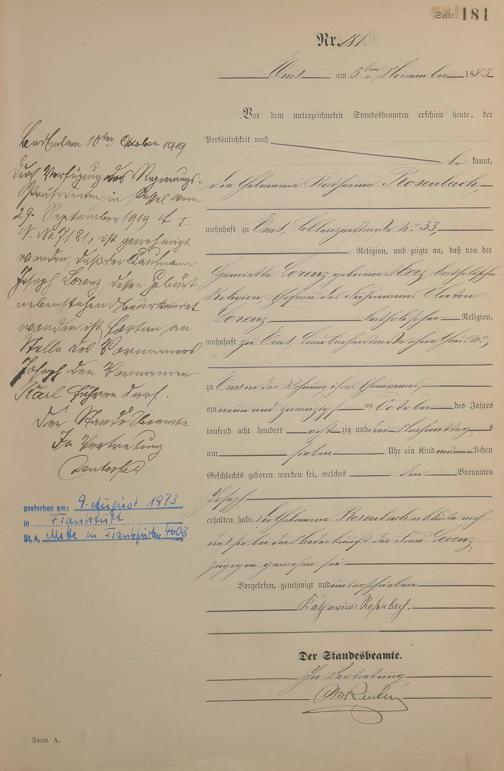 Seite 181
Nr. 181.
Ems am 5ten November 1883
Vor dem unterzeichneten Standesbeamten erschien heute, der
Persönlichkeit nach
be kannt,
die Hebamme Katharina Rosenbach
wohnhaft zu Ems, Coblenzerstraße No 33
Religion, und zeigte an, daß von der
Henriette Lorenz geborene katholischer
Religion, Ehefrau des Anton
Lorenz katholischer Religion,
wohnhaft zu Ems, bei ihrem Ehemanne,
zu Ems in der Wohnung ihres Ehemannes,
am neun und zwanzigsten ten October des Jahres
tausend acht hundert acht zig und drei Nachmittags
um sieben Uhr ein Kind männ lichen
Geschlechts geboren worden sei, welches den Vornamen
Joseph
erhalten habe. Die Hebamme Rosenbach erklärte noch,
daß sie bei der Niederkunft der Frau Lorenz
zugegen gewesen sei
Vorgelesen, genehmigt und unterschrieben
Katharina Rosenbach.
Der Standesbeamte.
In Vertretung
Bad Ems am 10ten October 1919
Durch Verfügung des Regierungs-
Präsidenten in Cassel vom
29. September 1919 A I
ist genehmigt
worden, daß der Kaufmann
Joseph Lorenz dessen Geburt
nebenstehend beurkundet
worden ist, fortan, an
Stelle des Vornamens
Joseph den Vornamen
Karl führen darf.
Der Standesbeamte
In Vertretung
gestorben am: 9. August 1973
in Frankfurt
St. A. Mitte in Frankfurt Nr. 4606
Form. A.